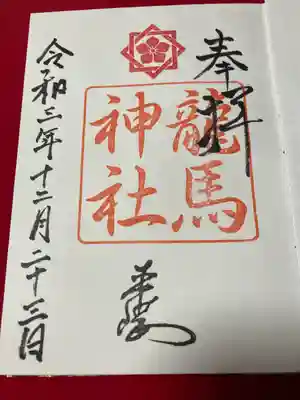 奉拝
龍馬
神社
令和三年十二月二十三日